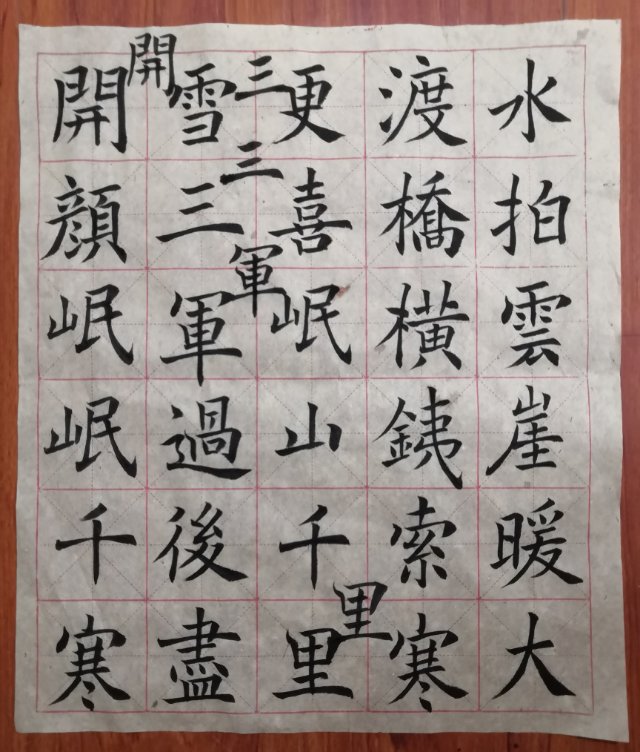 水拍雲崖暖大
渡橋橫銕索寒
更喜岷山千里
里
三
三
軍
雪三軍過後盡
開
開顏岷岷千寒